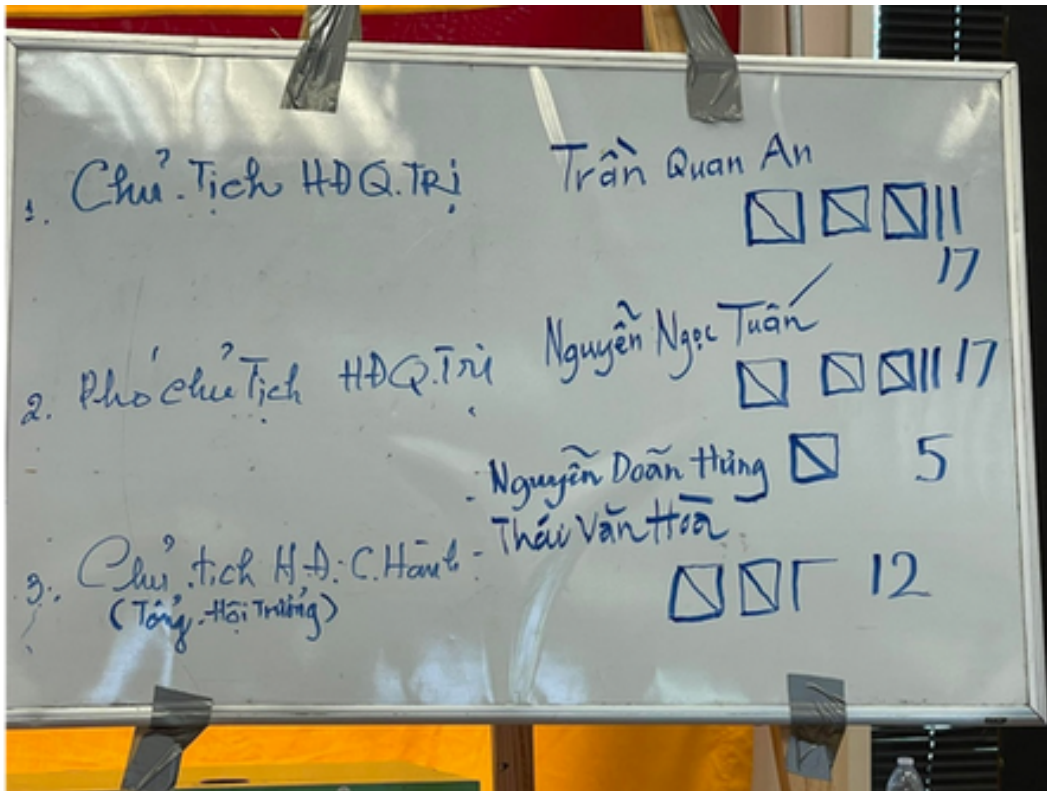 1. Chủ.Tịch HĐQ.TRị Trần Quan An
11
17
2. Phó chủ Tịch HĐQ.Trị Nguyễn Ngọc Tuấn
11 17
- Nguyễn Doãn Hùng 5
3. Chủ.tịch H.Đ.C.Hành - Thái Văn Hoà
(Tổng.Hội Trưởng) 12